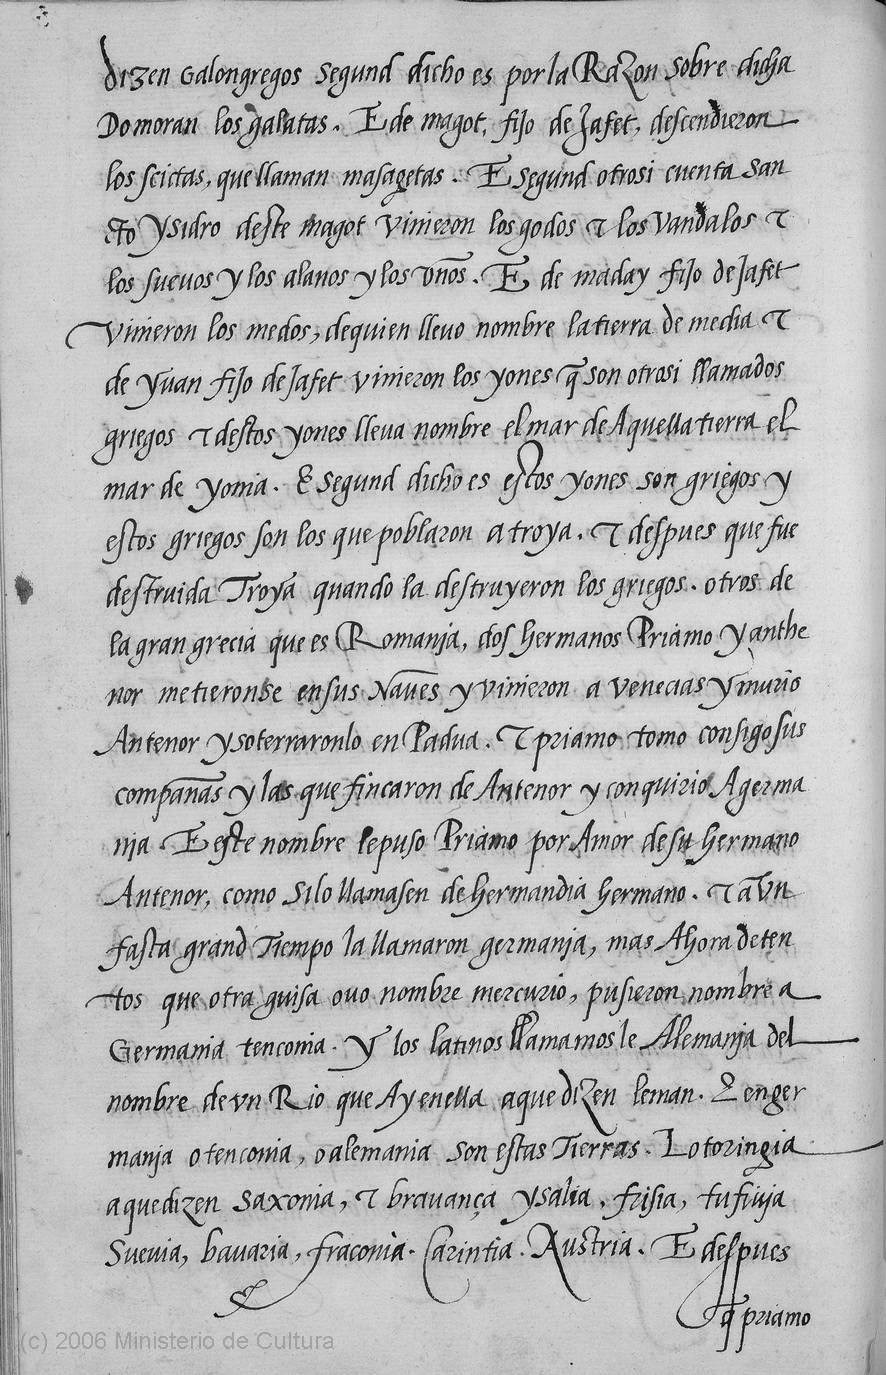 dizen Galongregos segund dicho es por la Razon sobre dicha
Do moran los galatas. E de magot, fijo de Jafet, descendieron
los scictas, que llaman masagetas. E segund otrosi cuenta san
cto Ysidro deste magot vinieron los godos & los Vandalos &
los suevos y los alanos y los vn̄os. E de maday fijo de Jafet
vinieron los medos, de quien llevo nombre la tierra de media &
de yuan fijo de Jafet vinieron los yones q̄ son otrosi llamados
griegos & destos yones lleua nombre el mar de Aquella tierra el
mar de yonia. E segund dicho es estos yones son griegos y
estos griegos son los que poblaron a troya. & despues que fue
destruida Troya quando la destruyeron los griegos. otros de
la gran grecia que es Romanja, dos hermanos Priamo y anthe
nor metieronse en sus Naves y vinieron a venecias y murio
Antenor y soterraronlo en Padua. & priamo tomo consigo sus
compan̄as y las que fincaron de Antenor y conquirio A germa
nja. E este nombre le puso Priamo por Amor de su hermano
Antenor, como si lo llamasen de hermandia hermano. & avn
fasta grand Tiempo la llamaron germanja, mas Ahora de ten
tos que otra guisa ovo nombre mercurio, pusieron nombre a
Germania tenconia. Y los latinos llamamosle Alemanja del
nombre de vn Rio que Ay en ella a que dizen leman. E en ger
manja o tenconia, o alemania son estas Tierras. Lotoringia
a que dizen saxonia, & bravança ysalia, frisia, tufinja
Suevia, bavaria, fraconia. Carintia. Austria. E despues
q̄ priamo
(c) 2006 Ministerio de Cultura